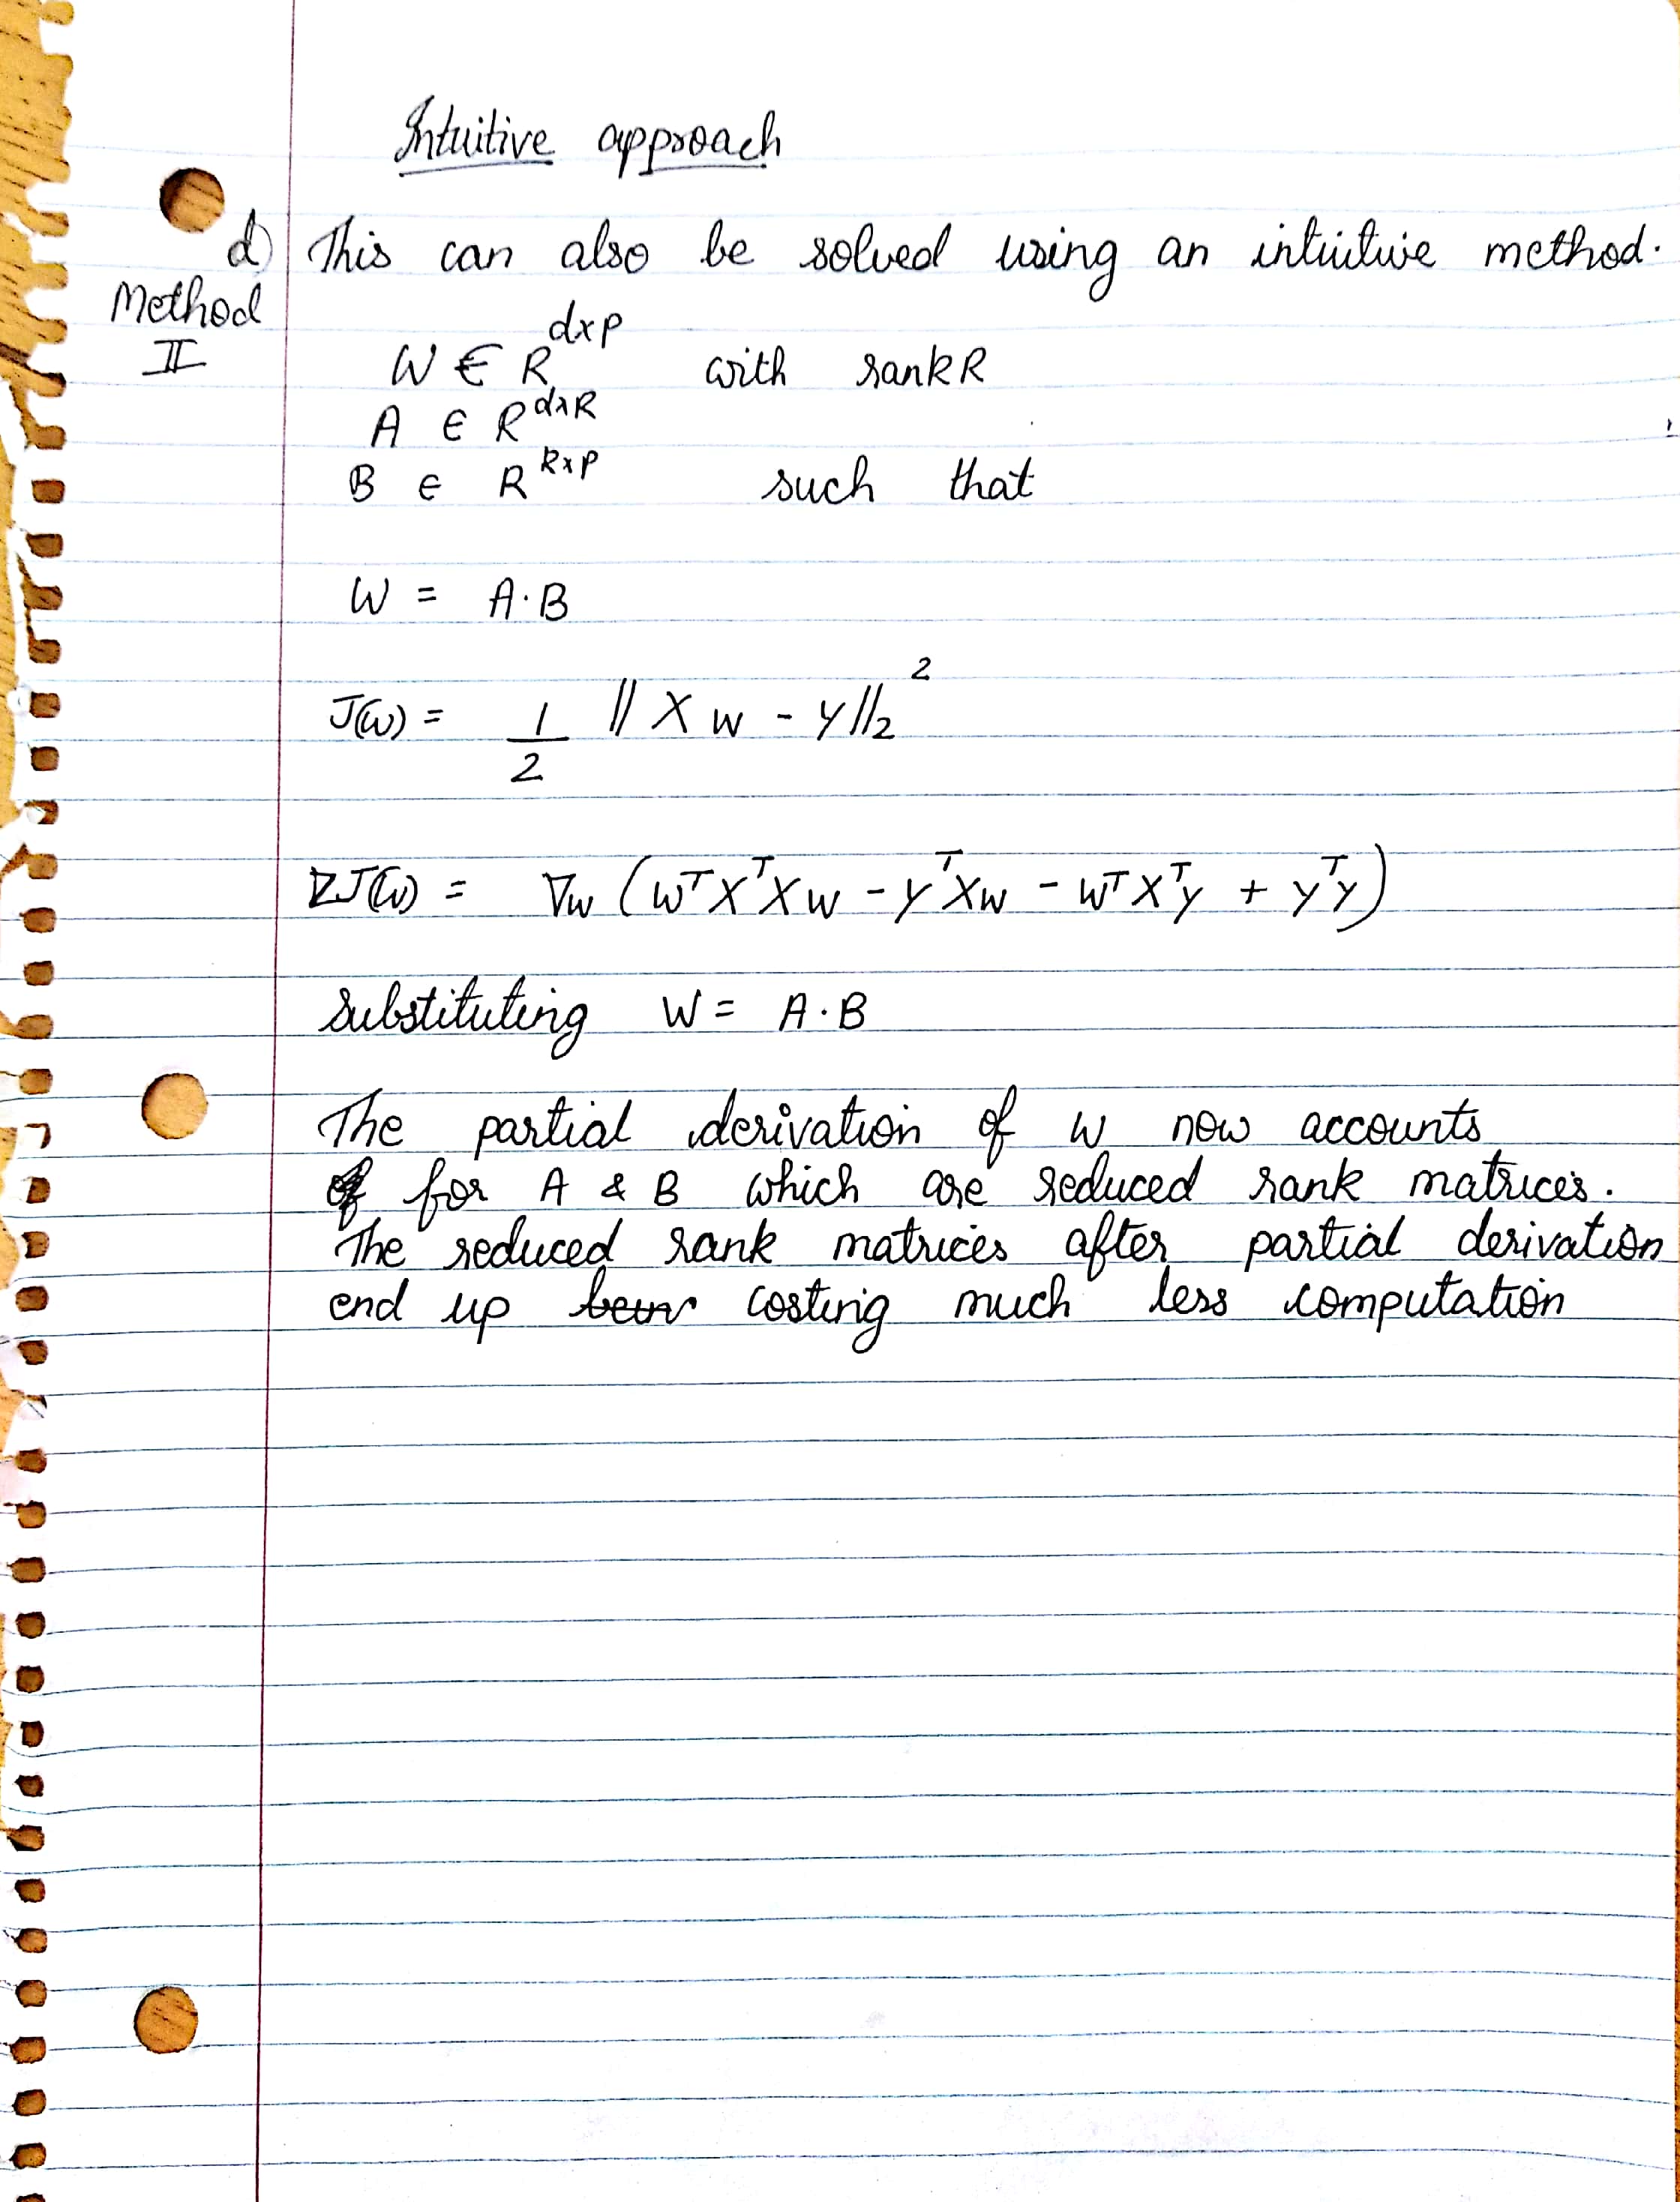 Intuitive approach
d) This can also be solved using an intuitive method.
Method
II
W ∈ R^{d×p} with rank R
A ∈ R^{d×R}
B ∈ R^{R×p} such that
W = A·B
J(W) = 1/2 || X W - Y ||_2^2
∇J(W) = ∇_W (W^T X^T X W - Y^T X W - W^T X^T Y + Y^T Y)
Substituting W = A·B
The partial derivation of W now accounts
for A & B which are reduced rank matrices.
The reduced rank matrices after partial derivation
end up costing much less computation